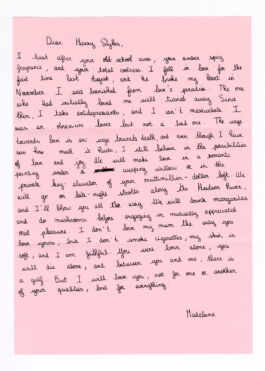 Dear Harry Styles,
I lust after your old school aura, your amber spicy
fragrance, and your total coolness. I fell in love for the
first time last August, and he broke my heart in
November. I was banished from love's paradise. The one
who had initially loved me well turned away. Since
then, I take antidepressants, and I can't masturbate. I
was an obsessive lover but not a bad one. The urge
towards love is an urge towards death, and even though I have
seen how much it hurts, I still believe in the possibilities
of love and joy. We will make love in a romantic
painting under a weeping willow or in the
private key-elevator of your multimillion-dollar loft. We
will go on late-night strolls along the Hudson River,
and I'll blow you all the way. We will drink margaritas
and do mushrooms before engaging in mutually appreciated
oral pleasure. I don't love my mum the way you
love yours, but I don't smoke cigarettes, my skin is
soft, and I am faithful. You were born alone, you
will die alone, and between you and me, there is
a gulf. But I will love you, not for one or another
of your qualities, but for everything.
Madelaine